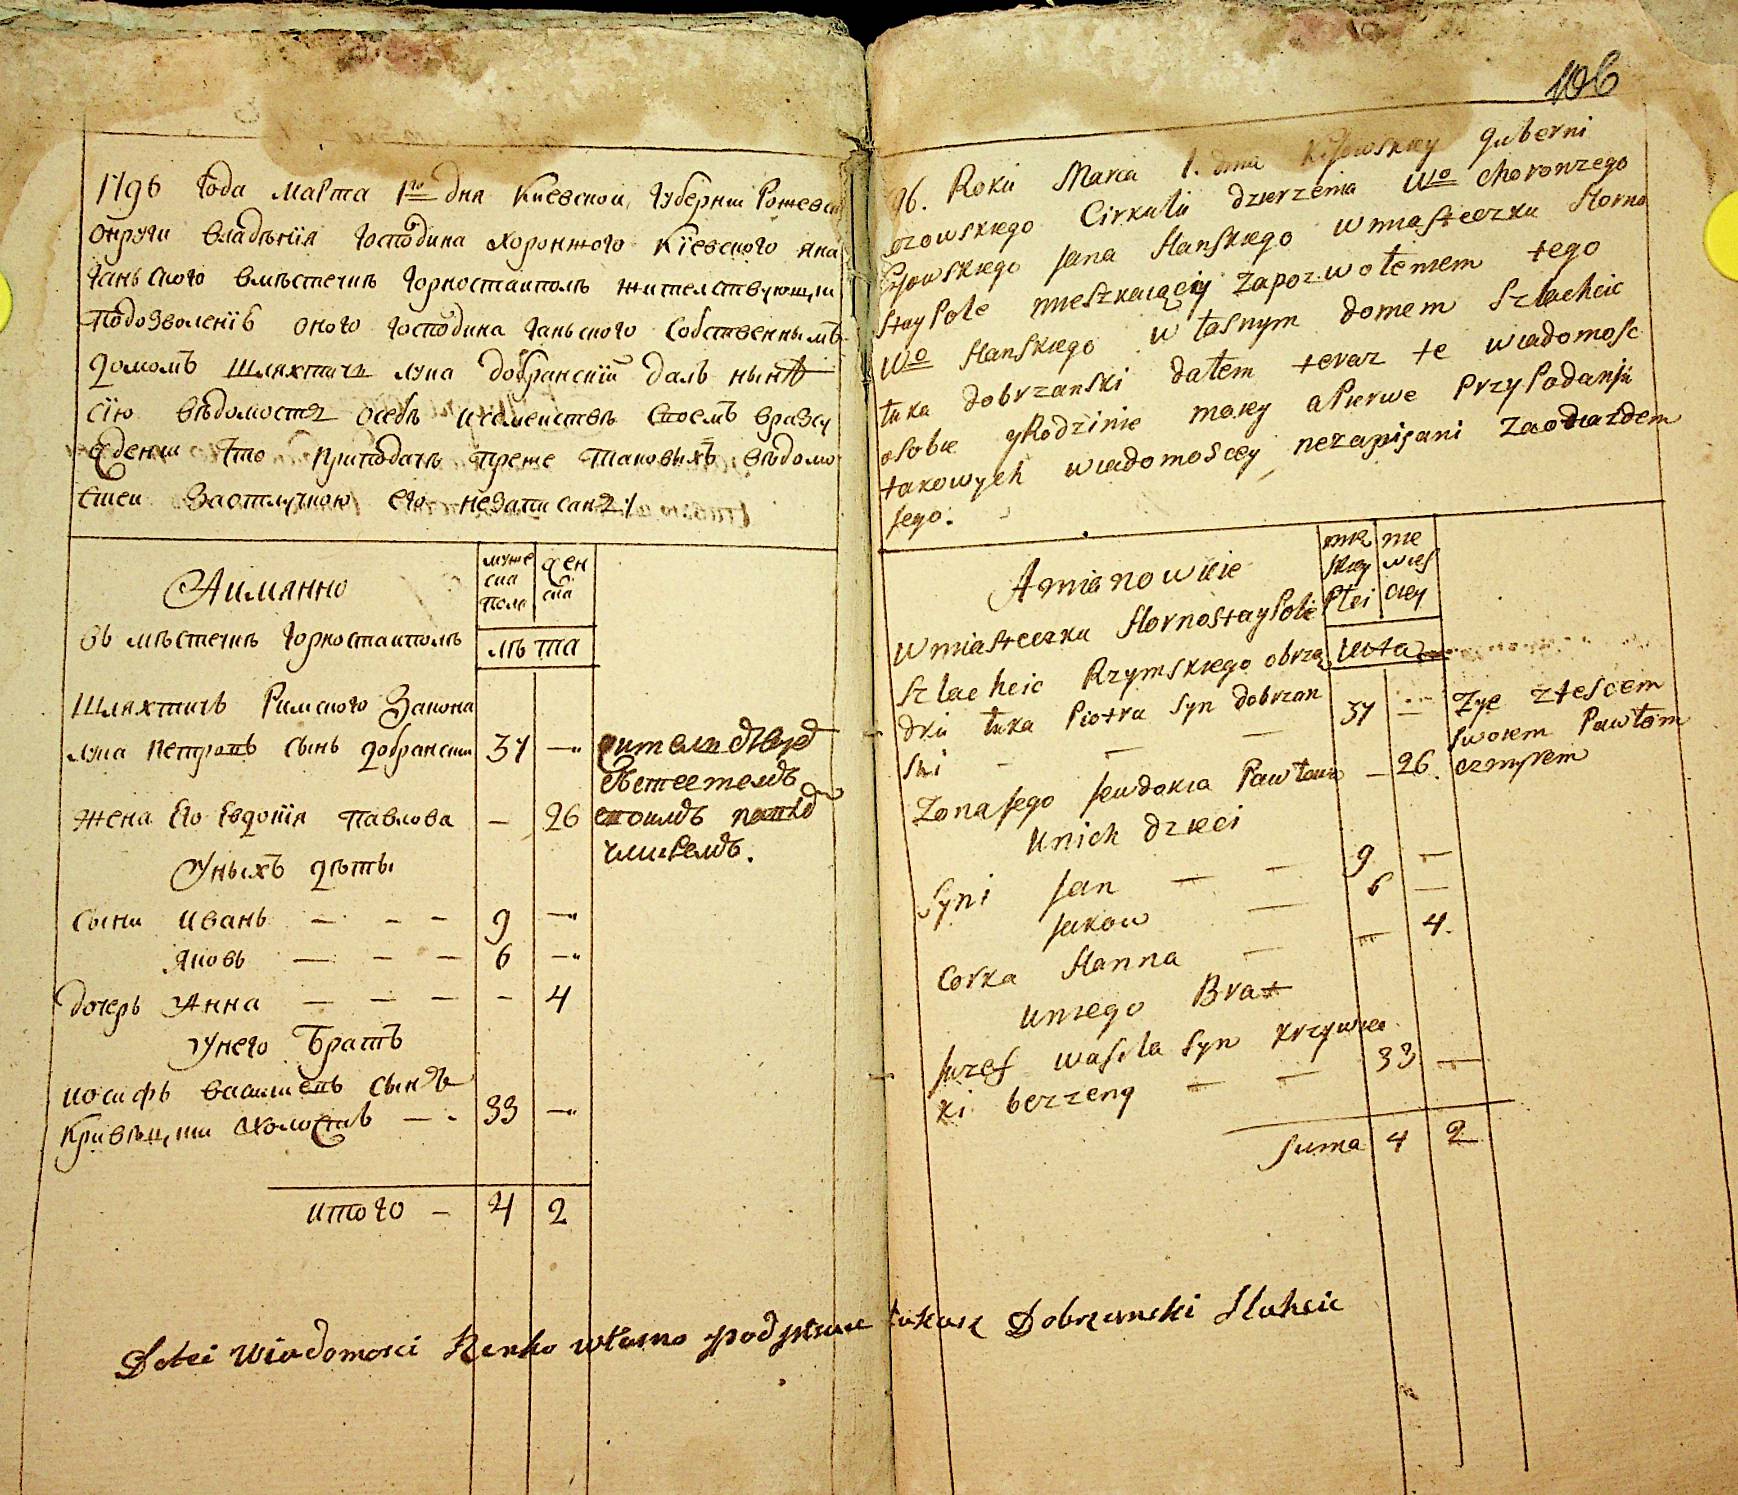 1796 года марта 1го дня Киевской губернии Рожевск
округи владѣнїя господина хоронжого Кїевского яна
ганьского вмѣстечкѣ горностаиполѣ жителствующии
подозволенїѣ оного господина ганьского Собственнымъ
домомъ шляхтичь лука добранскїй далъ нынѣ
сїю вѣдомость осебѣ исемеиствѣ своемъ вразсу
жденіи что приподачѣ преже таковыхъ вѣдомо
стеи заотлучкою его незаписанъ
Аимянно
муже
ска
пола
жен
ска
въ мѣстечкѣ горностаиполѣ
лѣта
шляхтичь Римского Закона
лука петровъ сынъ добрански 37 —
жена Его Евдокїя павлова — 26
житель
стоимъ
Унихъ дѣты
сыны иванъ — — — 9 —
яковъ — — — 6 —
дочерь Анна — — — — 4
Унего Братъ
иосифъ василиевъ сынъ
кривецки холостъ — — 33 —
итого — 4 2
106
96. Roku Marca 1. dnia Kijowskiey guberni
ozowskiego Cirkułu dzierzenia Wo choronzego
Kijowskiego Jana Hanskiego wmiasteczku Horno
staypole mieszkaiąciy zapozwoleniem tego
Wo Hanskiego własnym domem Szlachcic
łuka dobrzanski dałem teraz te wiadomosc
osobie yRodzinie moiey aPierwe Przypodaniu
takowych wiadomoscey niezapisani zaodiazdem
jego.
Amianowicie
mez
skiey
Płci
nie
wies
ciey
Wmiasteczku Hornostaypole
luta
Szlachcic Rzymskiego obrzą
dku łuka Piotra Syn dobrzan 37 —
ski — — —
Zye ztescem
swoiem Pawłom
czmyrem
Zona jego Jewdokia Pawłowa — 26.
Unich dzieci
Syni Jan — — 9 —
Jakow — 6 —
Corka Hanna — — 4.
Uniego Brat
Juzef wasila Syn krzywiec
ki bezzeny — — 33 —
Suma 4 2
Dotei Wiadomosci Renko własno podpisuie łukasz Dobrzanski Slahcic